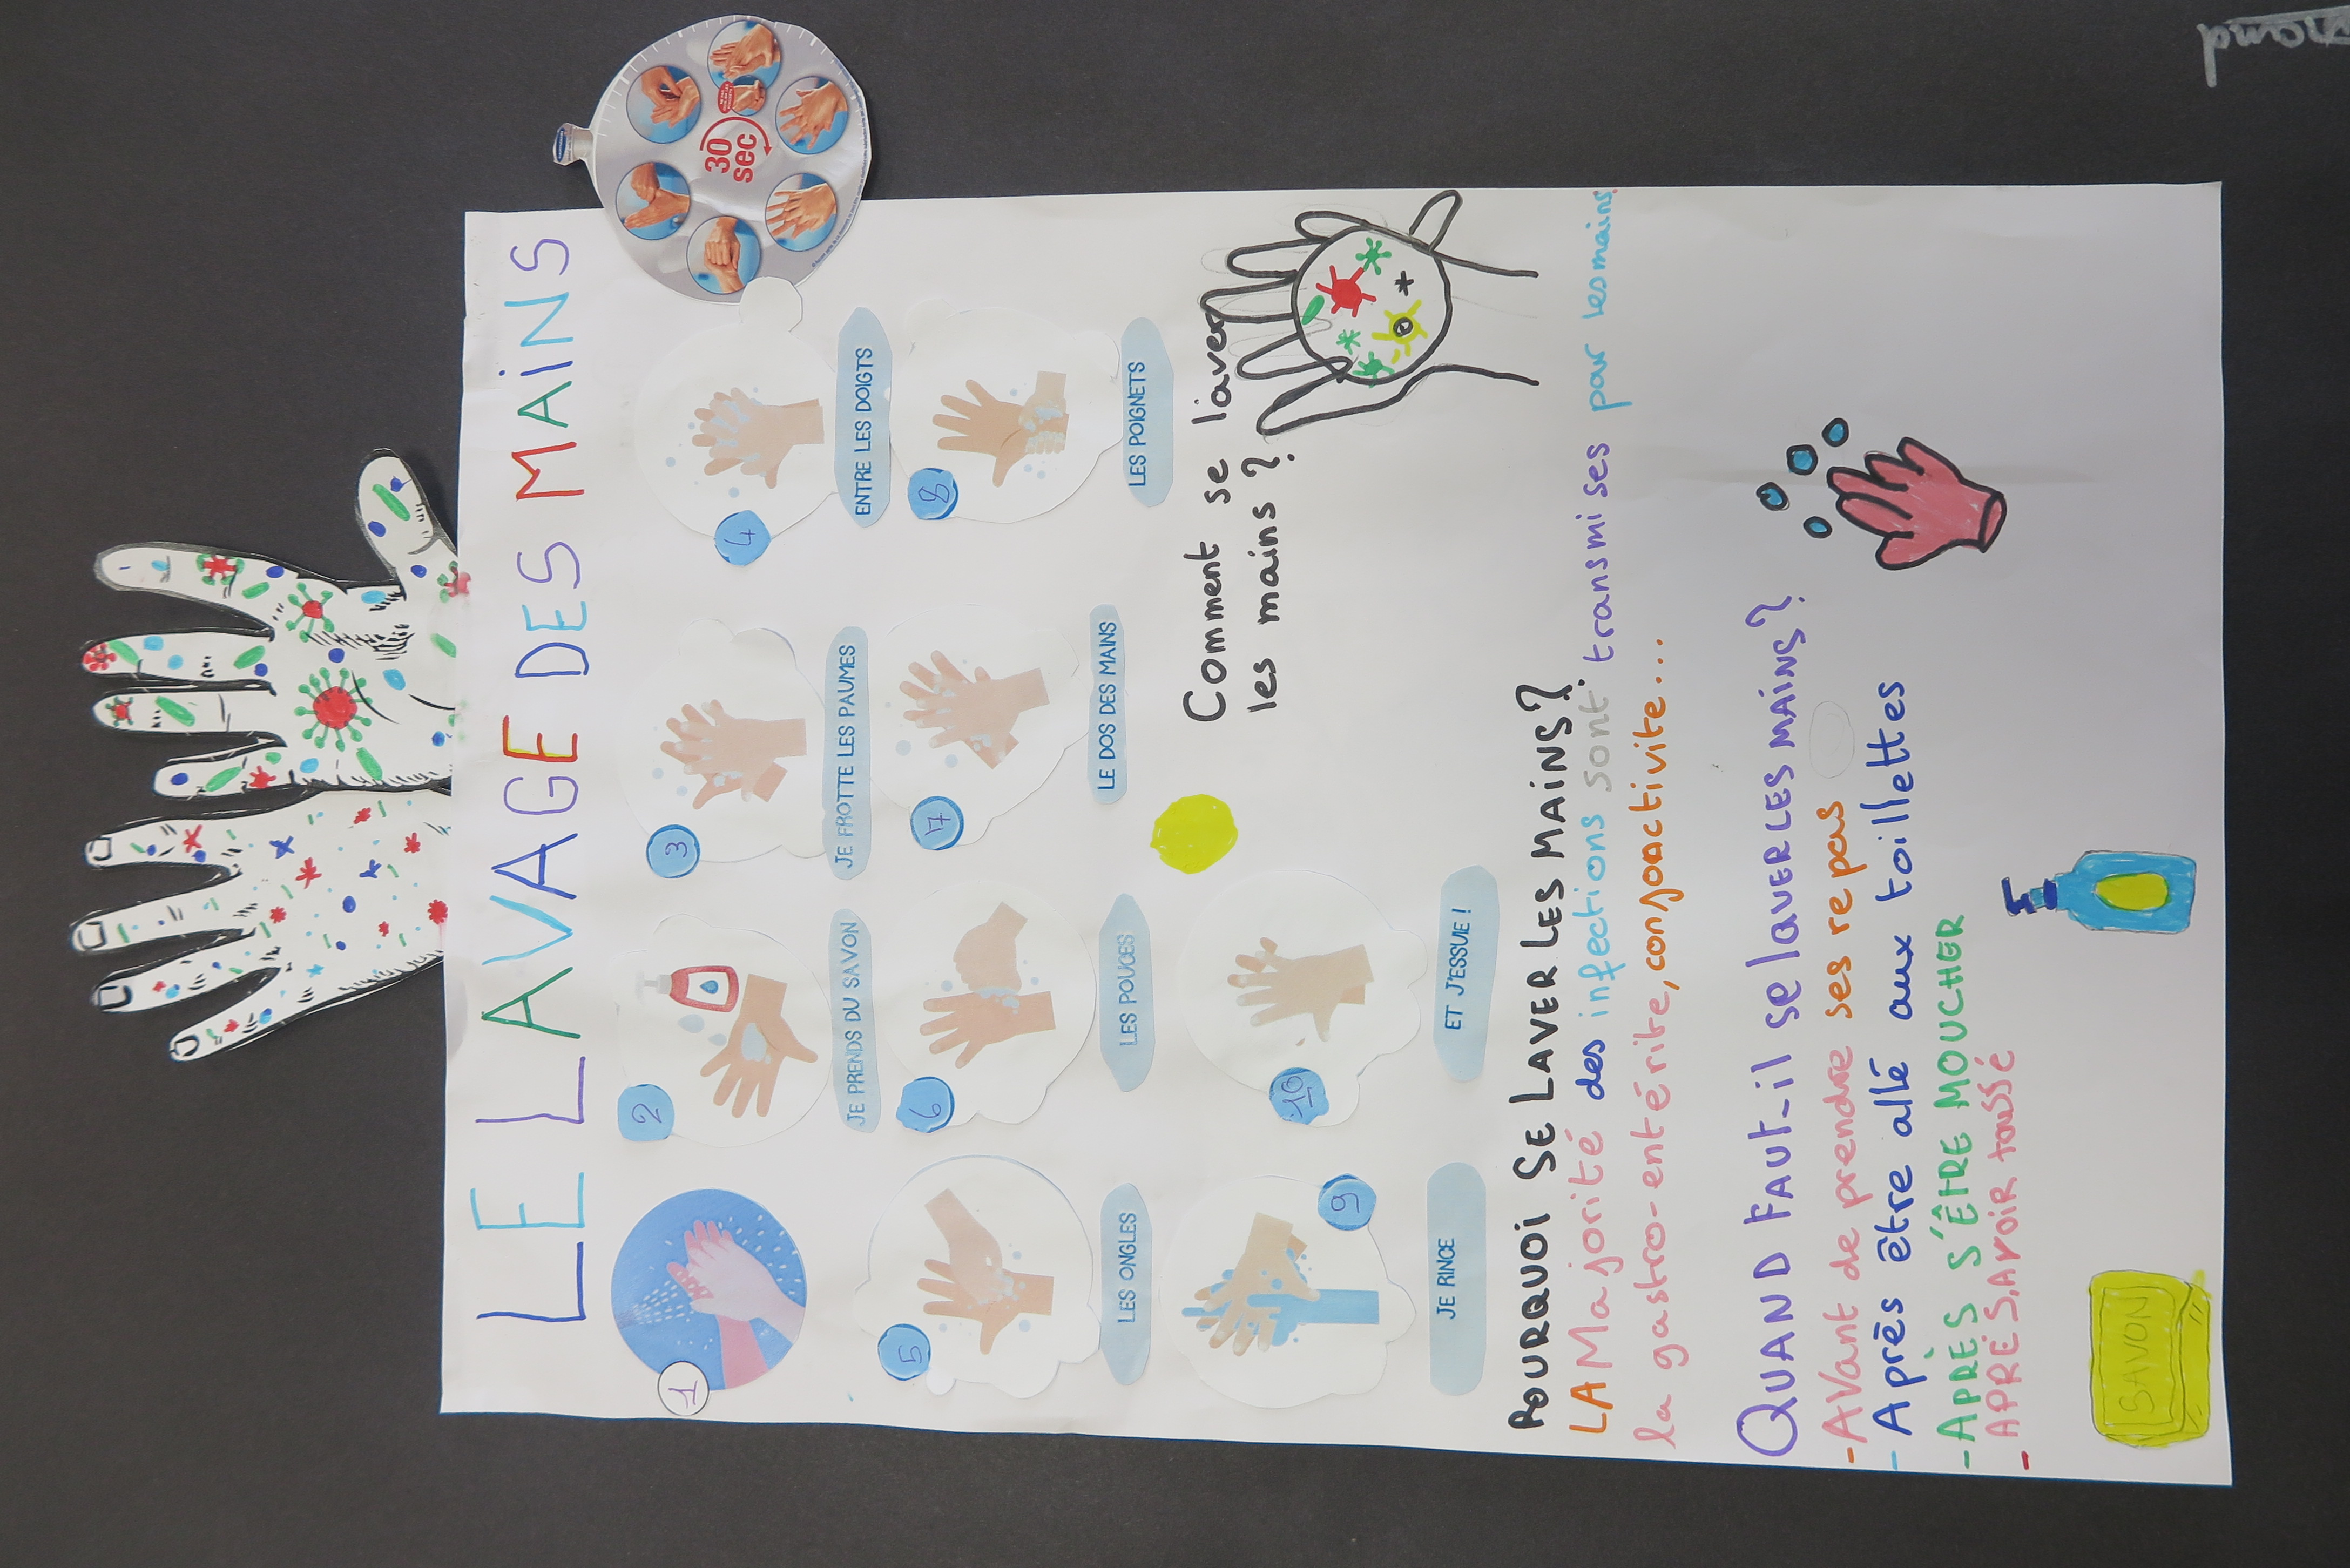 LE LAVAGE DES MAiNS
30
sec
1
2
3
4
JE PRENDS DU SAVON
JE FROTTE LES PAUMES
ENTRE LES DOIGTS
5
6
7
8
LES ONGLES
LES POUCES
LE DOS DES MAINS
LES POIGNETS
9
10
JE RINCE
ET J'ESSUIE !
Comment se laver
les mains ?
POURQUOi SE LAVER LES MAiNS?
LA Majorité des infections sont transmises par les mains
la gastro-entérite, conjoactivite...
QUAND FAUT-il se lAVER LES MAiNS?
- AVant de prendre ses repas
- Après être allé aux toilettes
- APRÈS S'ÊTRE MOUCHER
- APRÈS AVOIR toussé
SAVON